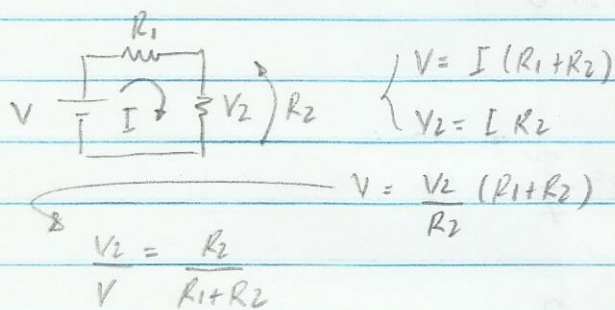 R1
V I V2 R2
V = I (R1+R2)
V2 = I R2
V = V2/R2 (R1+R2)
V2/V = R2/(R1+R2)